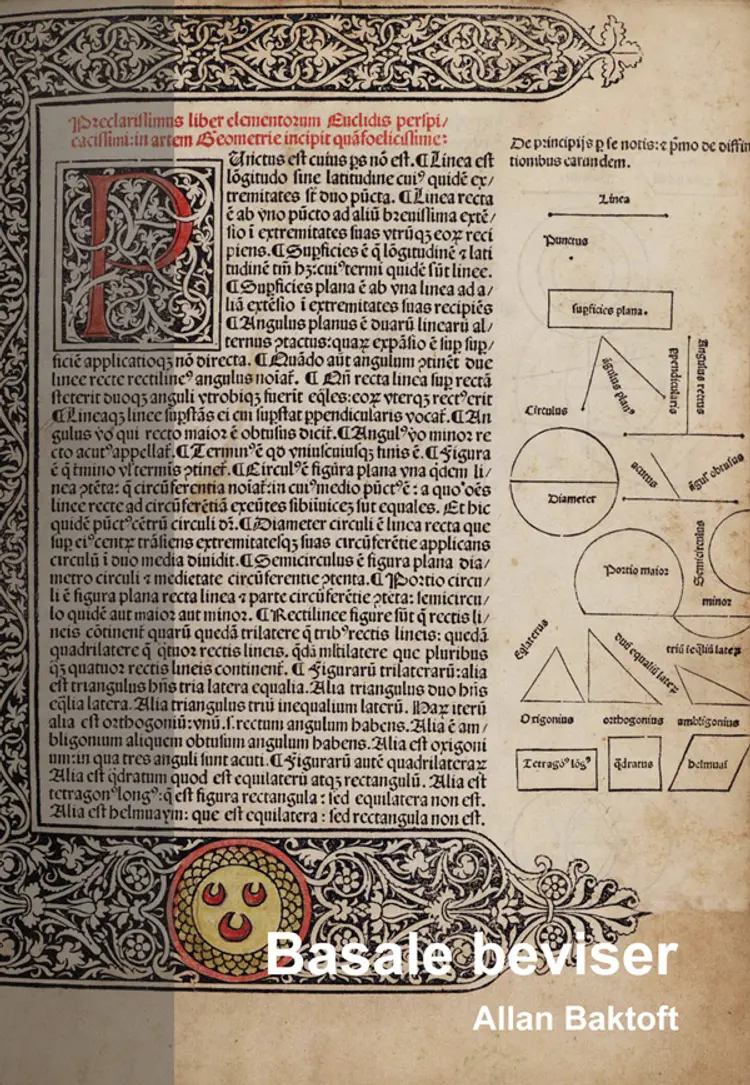 Preclarissimus liber elementorum Euclidis perspi/
cacissimi: in artem Geometrie incipit quāfoelicissime:
Punctus est cuius ps nō est. ¶ Linea est
lōgitudo sine latitudine cuiꝰ quidē ex/
tremitates st duo pūcta. ¶ Linea recta
ē ab vno pūcto ad aliū breuissima extē/
sio ī extremitates suas vtrūqꝫ eoꝝ reci
piens. ¶ Supficies ē q̄ lōgitudinē ⁊ lati
tudinē tm̄ hꝫ: cuiꝰ termi quidē sūt linee.
¶ Supficies plana ē ab vna linea ad a/
liā extēsio ī extremitates suas recipiēs
¶ Angulus planus ē duarū linearū al/
ternus ꝯtactus: quaꝝ expāsio ē sup sup/
ficiē applicatioqꝫ nō directa. ¶ Quādo aūt angulum ꝯtinēt due
linee recte rectilineꝰ angulus noīat̄. ¶ Qn̄ recta linea sup rectā
steterit duoqꝫ anguli vtrobiqꝫ fuerit eq̄les: eoꝝ vterqꝫ rectꝰ erit
¶ Lineaqꝫ linee supstās ei cui supstat ppendicularis vocat̄. ¶ An
gulus vo̊ qui recto maior ē obtusus dicit̄. ¶ Angulꝰ vo̊ minor re
cto acutꝰ appellat̄. ¶ Terminꝰ ē qd vniuscuiusqꝫ finis ē. ¶ Figura
ē q̄ tmino vl̓ termīs ꝯtinet̄. ¶ Circulꝰ ē figūra plana vna qdem li/
nea ꝯtēta: q̄ circūferentia noīat̄: in cuiꝰ medio pūctꝰ ē: a quo oēs
linee recte ad circūferētiā exeūtes sibiinuiceꝫ sut equales. Et hic
quidē pūctꝰ cētrū circuli dr̄. ¶ Diameter circuli ē linea recta que
sup eiꝰ centꝝ trāsiens extremitatesqꝫ suas circūferētie applicans
circulū ī duo media diuidit. ¶ Semicirculus ē figura plana dia/
metro circuli ⁊ medietate circūferentie ꝯtenta. ¶ Portio circu/
li ē figura plana recta linea ⁊ parte circūferētie ꝯtēta: semicircu/
lo quidē aut maior aut minor. ¶ Rectilinee figure sūt q̄ rectis li/
neis cōtinent̄ quarū quedā trilatere q̄ tribꝰ rectis lineis: quedā
quadrilatere q̄ qtuor rectis lineis. qdā mltilatere que pluribus
qꝫ quatuor rectis lineis continent̄. ¶ Figurarū trilaterarū: alia
est triangulus hn̄s tria latera equalia. Alia triangulus duo hn̄s
eq̄lia latera. Alia triangulus triū inequalium laterū. Haꝝ iterū
alia est orthogoniū: vnū .s. rectum angulum habens. Alia ē am/
bligonium aliquem obtusum angulum habens. Alia est oxigoni
um: in qua tres anguli sunt acuti. ¶ Figurarū autē quadrilateraꝝ
Alia est qdratum quod est equilaterū atqꝫ rectangulū. Alia est
tetragonꝰ longꝰ: q̄ est figura rectangula: sed equilatera non est.
Alia est helmuaym: que est equilatera: sed rectangula non est.
De principijs p se notis: ⁊ pmo de diffin
tionibus earundem.
Linea
Punctus
supficies plana.
āgulus planꝰ
ppendicularis
Angulus rectus
Circulus
Diameter
acutus
āgulꝰ obtusus
Portio maior
Semicirculus
minor
Eqlaterus
duū equaliū lateꝝ
triū īeqliū lateꝝ
Oxigonius
orthogonius
ambligonius
Tetragōꝰ lōgꝰ
qdratus
helmuaī
Basale beviser
Allan Baktoft